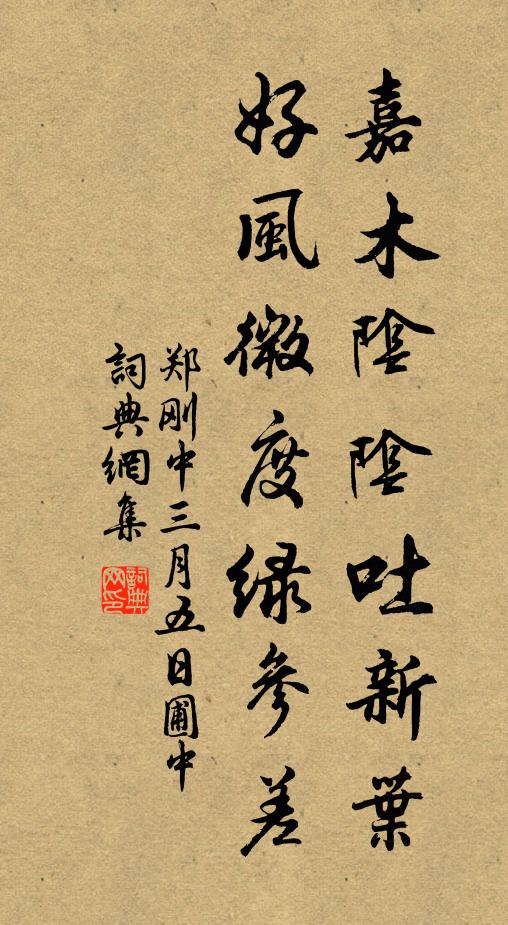 嘉木陰陰吐新葉
好風微度緑參差
郑刚中三月五日圃中
詞典網集
詞典网印